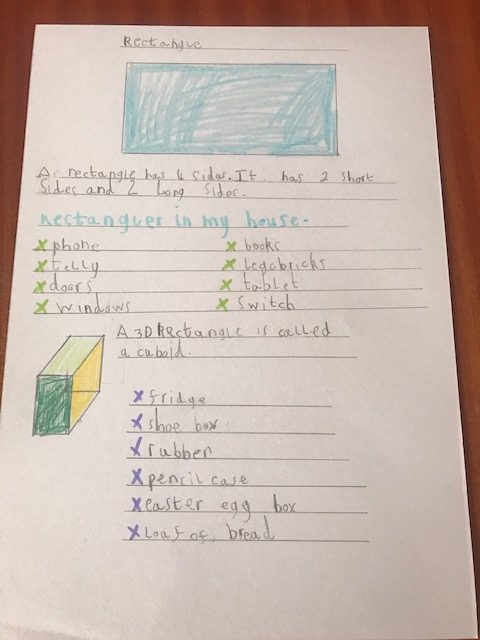 Rectangle
A rectangle has 4 sides. It has 2 short
sides and 2 long sides.
Rectangues in my house.
x phone
x telly
x doors
x windows
x books
x legobricks
x tablet
x switch
A 3D Rectangle is called
a cuboid.
x fridge
x shoe box
x rubber
x pencil case
x easter egg box
x Loaf of bread